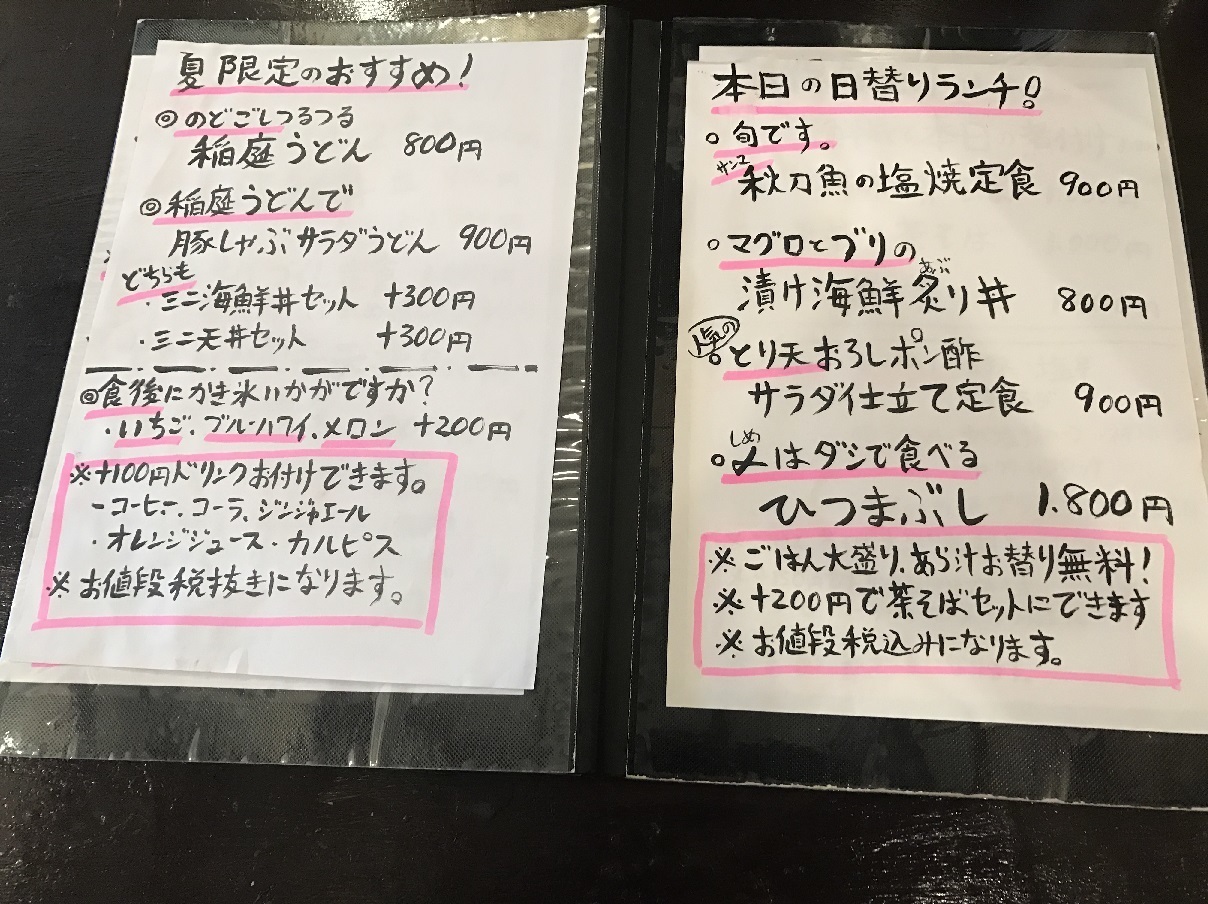 夏限定のおすすめ!
◎のどごしつるつる
稲庭うどん 800円
◎稲庭うどんで
豚しゃぶサラダうどん 900円
どちらも
・ミニ海鮮丼セット +300円
・ミニ天丼セット +300円
◎食後にかき氷いかがですか?
・いちご、ブルーハワイ、メロン +200円
※+100円ドリンクお付けできます。
-コーヒー、コーラ、ジンジャエール
・オレンジジュース・カルピス
※お値段税抜きになります。
本日の日替りランチ!
○旬です。
サンマ
秋刀魚の塩焼定食 900円
○マグロとブリの
あぶ
漬け海鮮炙り丼 800円
人気の
○とり天おろしポン酢
サラダ仕立て定食 900円
しめ
○〆はダシで食べる
ひつまぶし 1.800円
※ごはん大盛り、あら汁お替り無料!
※+200円で茶そばセットにできます
※お値段税込みになります。